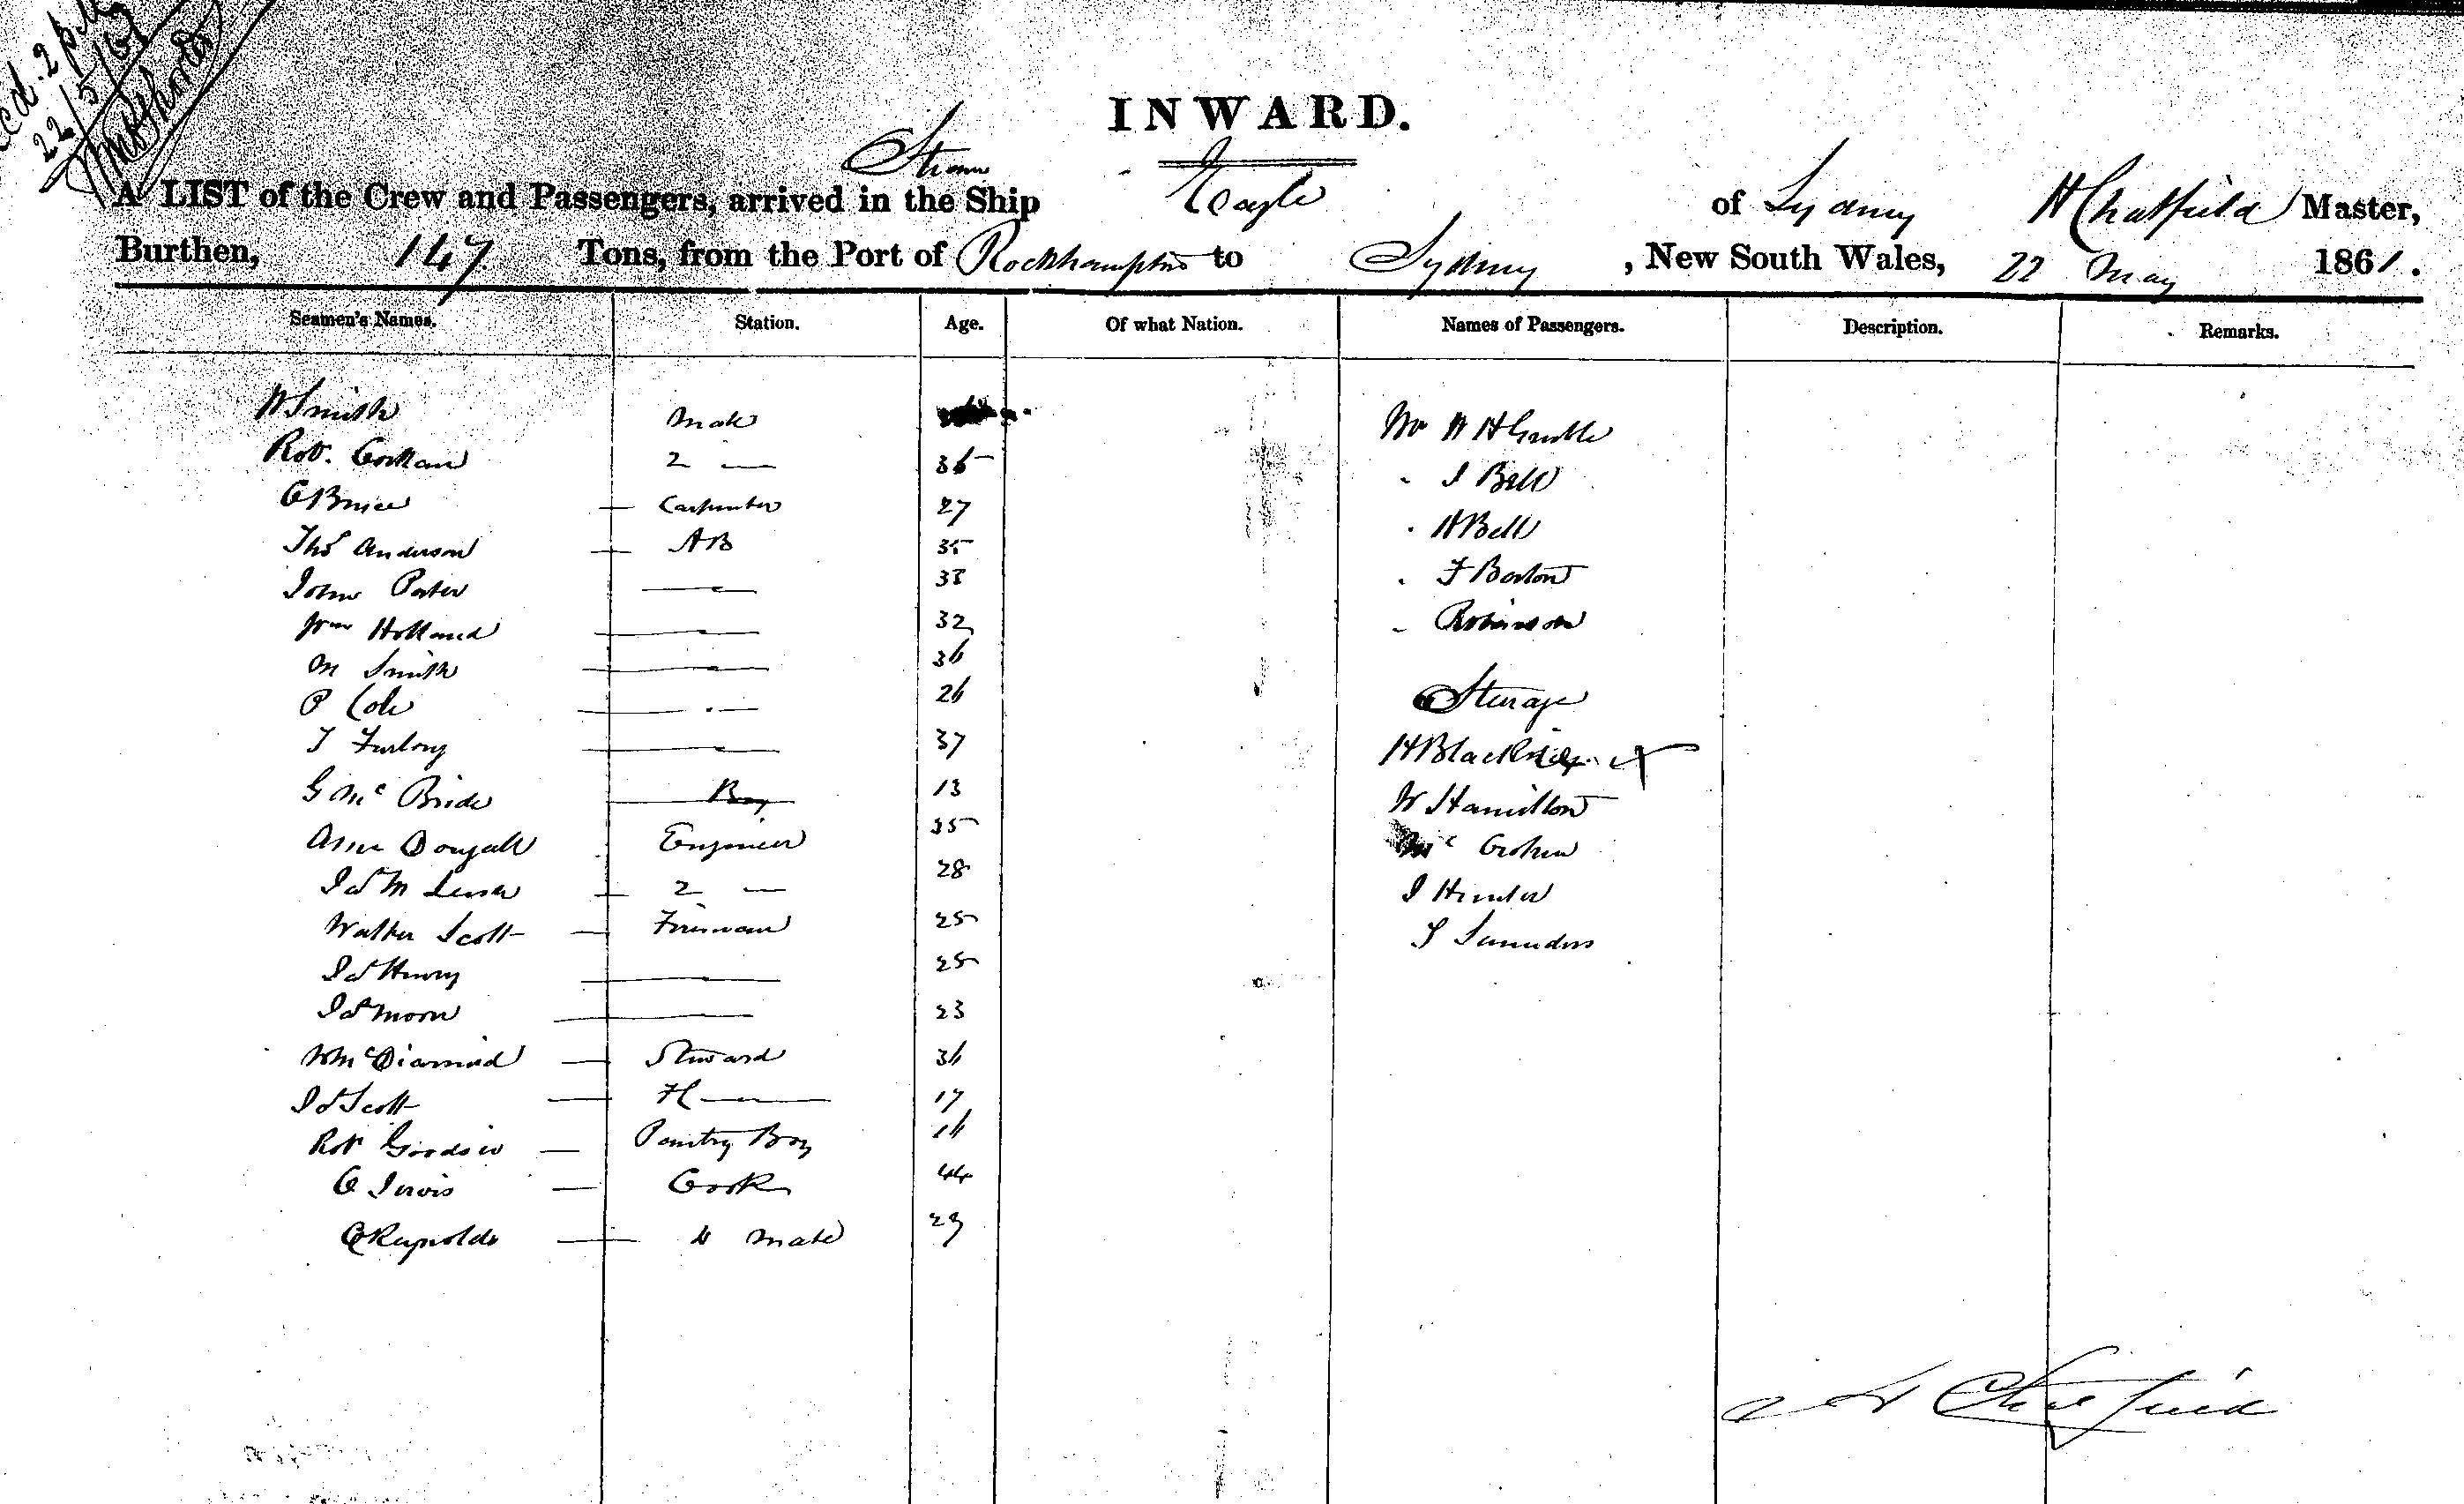 22/5/61
INWARD.
Steam
A LIST of the Crew and Passengers, arrived in the Ship Eagle of Sydney H Chatfield Master,
Burthen, 147 Tons, from the Port of Rockhampton to Sydney, New South Wales, 22 May 1861.
Seamen's Names. Station. Age. Of what Nation. Names of Passengers. Description. Remarks.
W Smith Mate
Robt. 2 — 36
C Bruce — Carpenter 27
Thos Anderson — AB 35
John Porter — 38
Wm Holland — 32
M Smith — 36
P Cole — 26
T Furlong — 37
G McBride — Boy 13
Dougall Engineer 35
Jas M — 2 — 28
Walter Scott — Fireman 25
Jas Henry — 25
Jas Moore — 23
W McDiarmid — Steward 36
Jas Scott — 17
Robt Goodsir — Pantry Boy 16
C Jervis — Cook 44
C Reynolds — Mate 29
Mr W H
" J Bell
" H Bell
" F Barton
" Robinson
Steerage
H
W Hamilton
Mc
J Hunter
S Saunders
H Chatfield